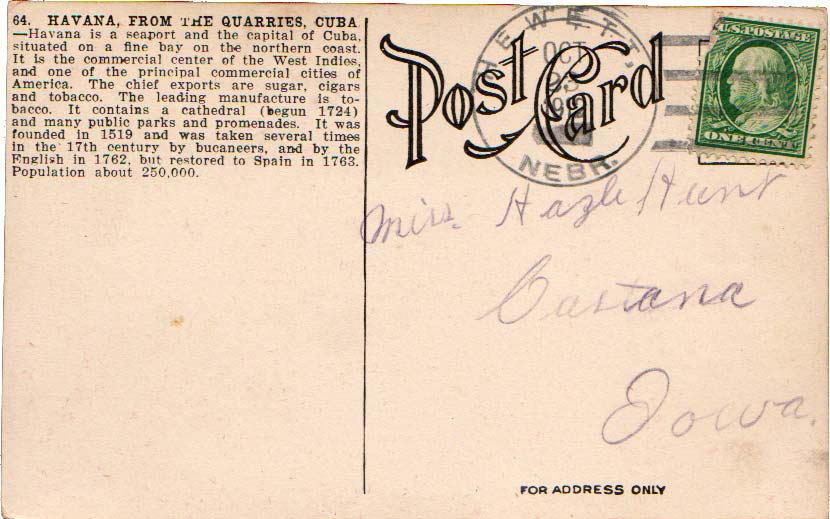 64. HAVANA, FROM THE QUARRIES, CUBA
—Havana is a seaport and the capital of Cuba,
situated on a fine bay on the northern coast.
It is the commercial center of the West Indies,
and one of the principal commercial cities of
America. The chief exports are sugar, cigars
and tobacco. The leading manufacture is to-
bacco. It contains a cathedral (begun 1724)
and many public parks and promenades. It was
founded in 1519 and was taken several times
in the 17th century by bucaneers, and by the
English in 1762, but restored to Spain in 1763.
Population about 250,000.
Post Card
HEWETT,
OCT
NEBR.
U.S. POSTAGE
ONE CENT
Miss. Hazle Hunt
Castana
Iowa.
FOR ADDRESS ONLY